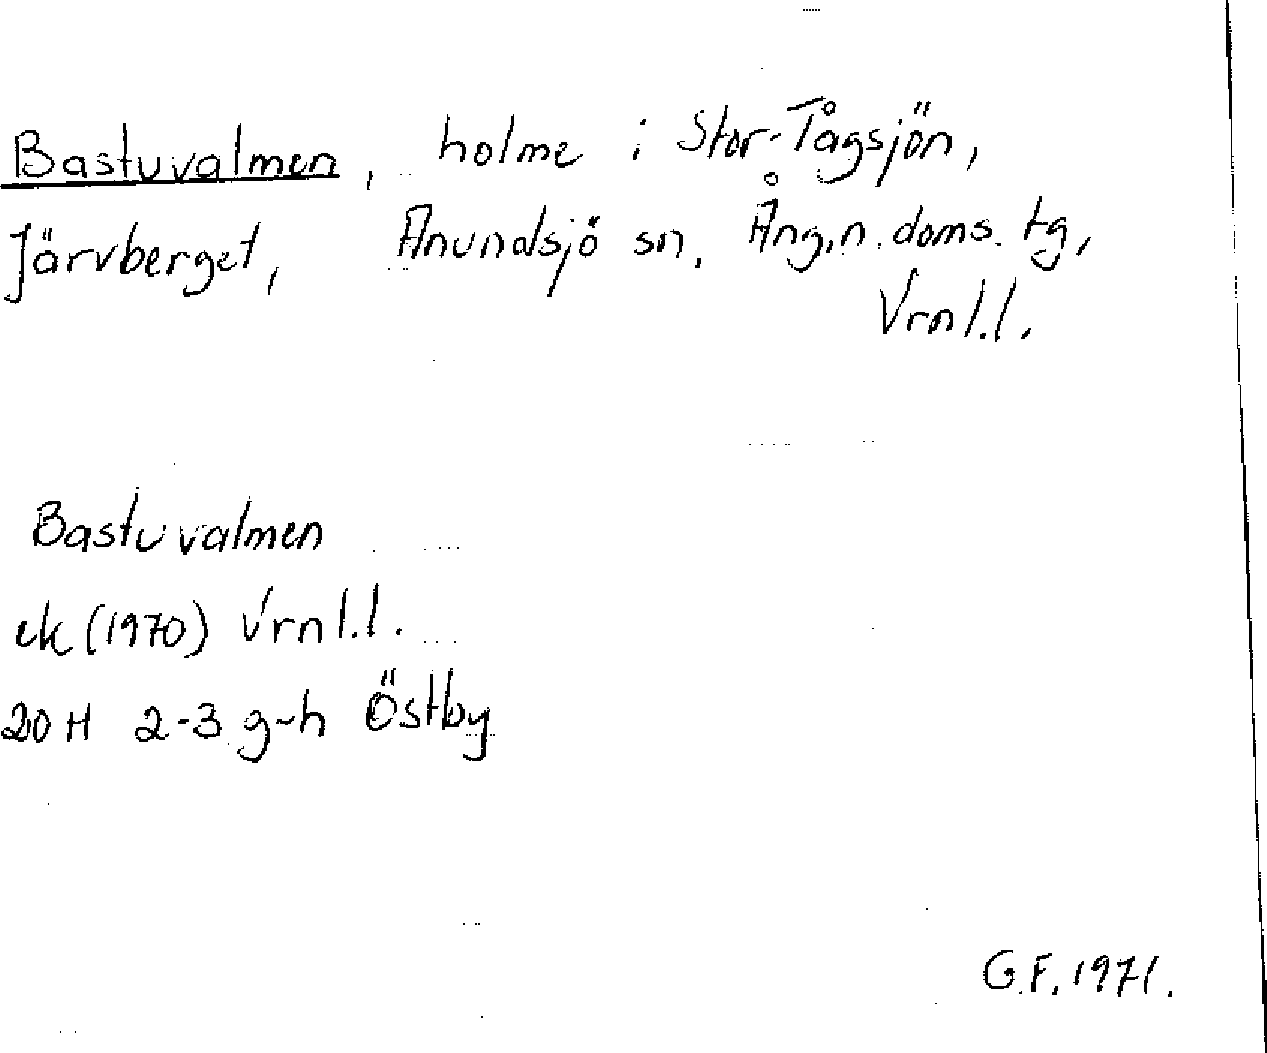 Bastuvalmen, holme i Stor-Tågsjön,
Järvberget, Anundsjö sn. Ång.n. doms. tg,
Vrnl.l.
Bastuvalmen
ek (1970) Vrnl.l.
20 H 2-3 g-h Östby
G.F. 1971.